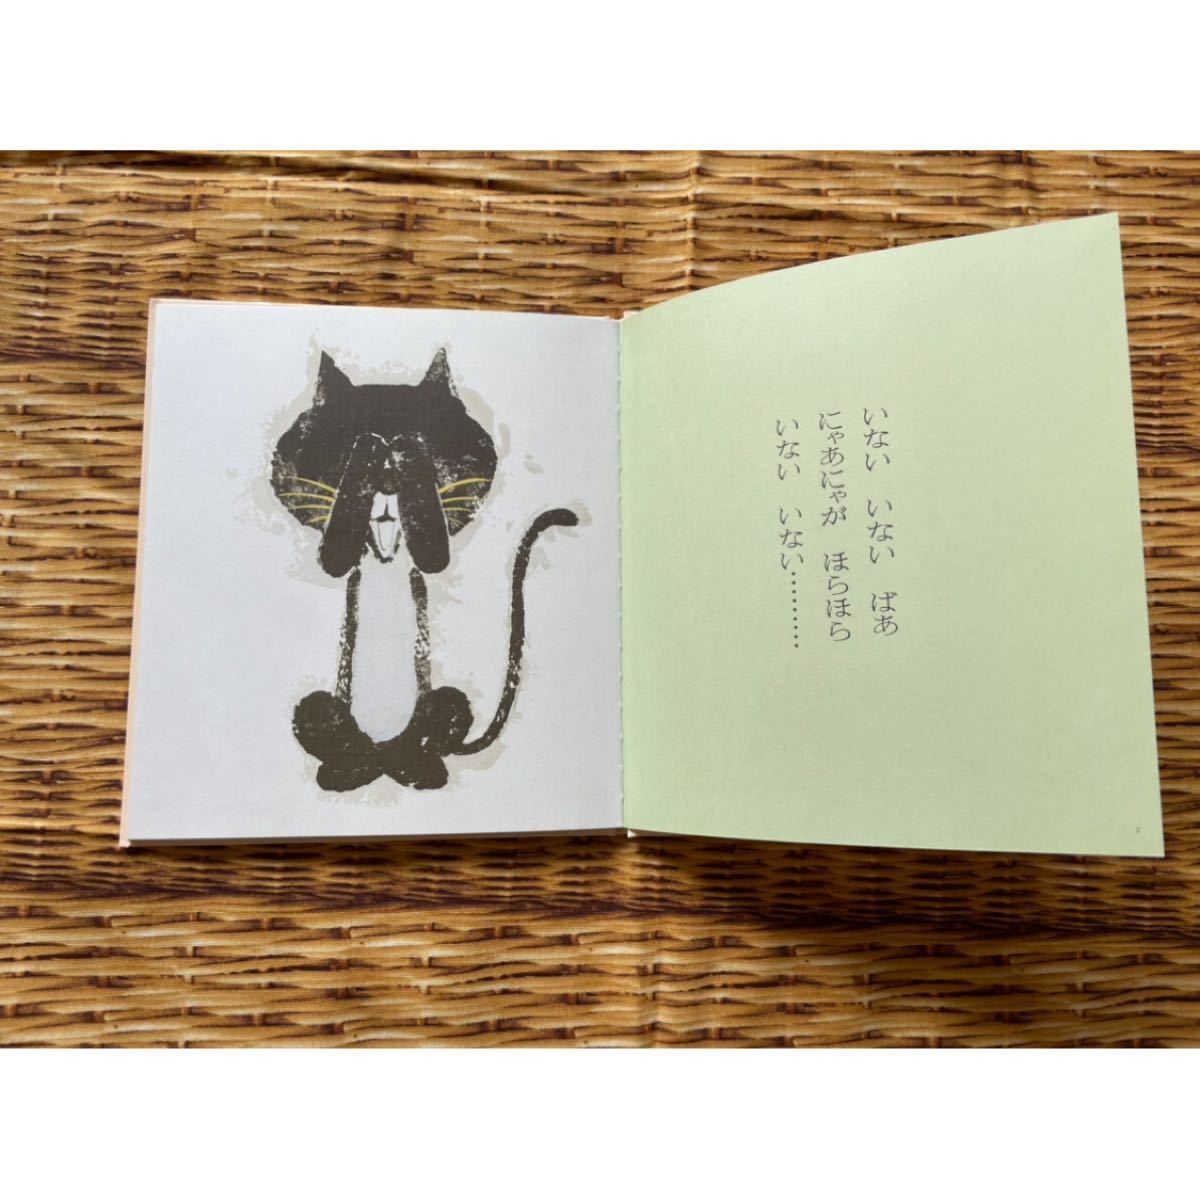 いない　いない　ばあ
にゃあにゃが　ほらほら
いない　いない………
2